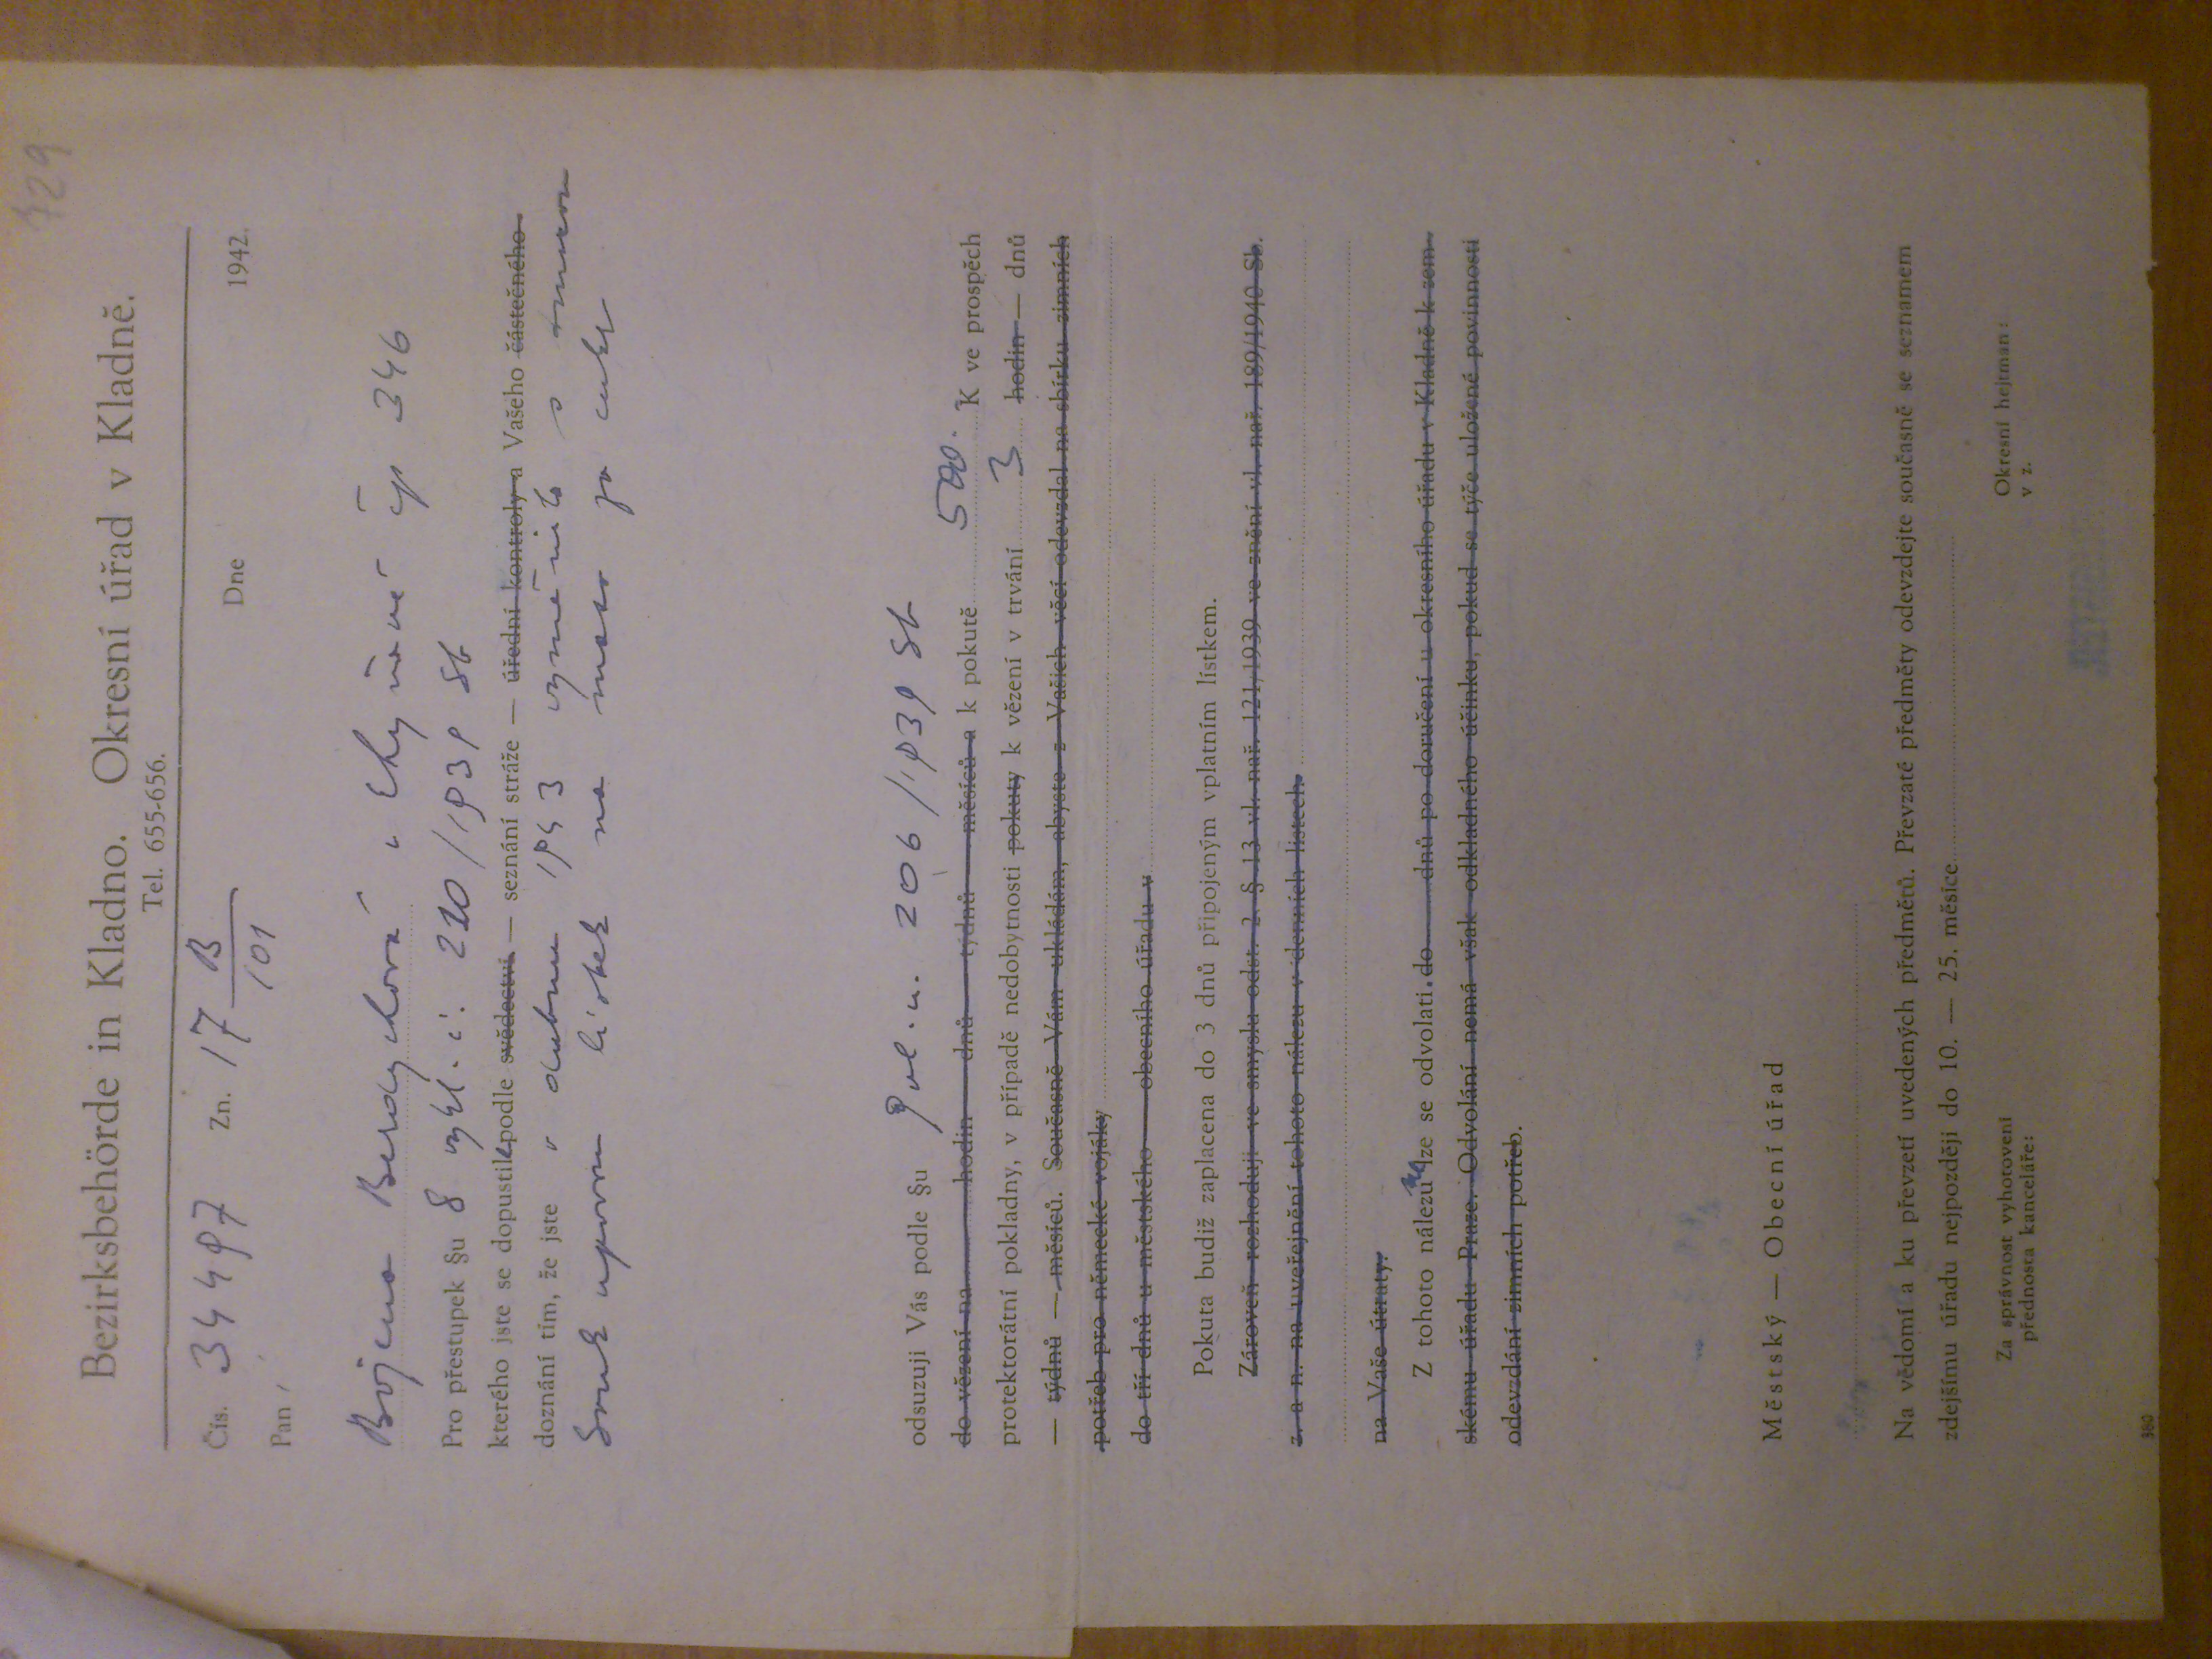 729
Bezirksbehörde in Kladno. Okresní úřad v Kladně.
Tel. 655-656.
Čís. 34497 Zn. 17 B/101 Dne 1942.
Pan
Božena Berdychová v Chyňavě čp 346
Pro přestupek §u 8 vyhl. č. 210/1939 Sb
kterého jste se dopustila podle svědectví — seznání stráže — úřední kontroly a Vašeho částečného
doznání tím, že jste v dubnu 1943 vyměnila s
Soukupovou lístek na maso za cukr
odsuzuji Vás podle §u vl. n. 206/1939 Sb
do vězení na hodin dnů týdnů měsíců a k pokutě 500.- K ve prospěch
protektorátní pokladny, v případě nedobytnosti pokuty k vězení v trvání 3 hodin — dnů
— týdnů — měsíců. Současně Vám ukládám, abyste z Vašich věcí odevzdal na sbírku zimních
potřeb pro německé vojáky
do tří dnů u městského — obecního úřadu v
Pokuta budiž zaplacena do 3 dnů připojeným vplatním lístkem.
Zároveň rozhoduji ve smyslu odst. 2. § 13 vl. nař. 121/1939 ve znění vl. nař. 189/1940 Sb.
z. a n. na uveřejnění tohoto nálezu v denních listech
na Vaše útraty.
Z tohoto nálezu nelze se odvolati. do dnů po doručení u okresního úřadu v Kladně k zem-
skému úřadu Praze. Odvolání nemá však odkladného účinku, pokud se týče uložené povinnosti
odevzdání zimních potřeb.
Městský — Obecní úřad
Na vědomí a ku převzetí uvedených předmětů. Převzaté předměty odevzdejte současně se seznamem
zdejšímu úřadu nejpozději do 10. — 25. měsíce
Za správnost vyhotovení Okresní hejtman:
přednosta kanceláře: v z.
380